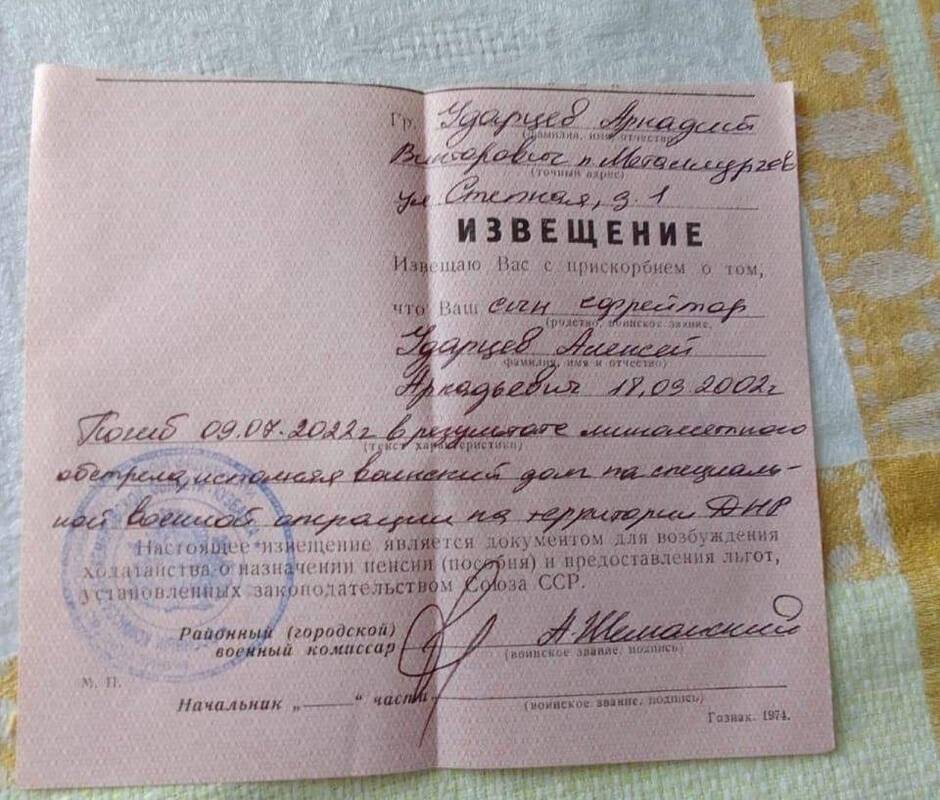 Гр. Ударцев Аркадий
(фамилия, имя, отчество)
Викторович п. Металлургов
(точный адрес)
ул Степная, д. 1
ИЗВЕЩЕНИЕ
Извещаю Вас с прискорбием о том,
что Ваш сын ефрейтор
(родство, воинское звание,
Ударцев Алексей
фамилия, имя и отчество)
Аркадьевич 18.09.2002г
Погиб 09.07.2022г в результате минометного
(текст характеристики)
обстрела, исполняя воинский долг на специаль-
ной военной операции на территории ДНР
Настоящее извещение является документом для возбуждения
ходатайства о назначении пенсии (пособия) и предоставления льгот,
установленных законодательством Союза ССР.
Районный (городской)
военный комиссар А.
(воинское звание, подпись)
М. П.
Начальник „——“ части
(воинское звание, подпись)
Гознак. 1974.